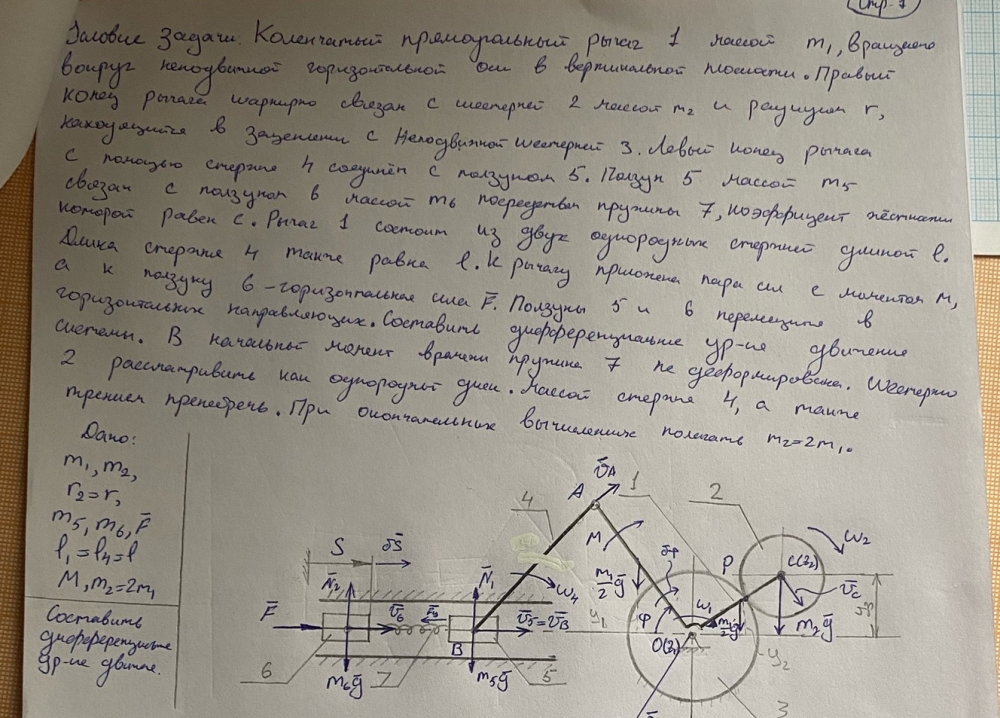 стр. 1
Условие задачи: Коленчатый прямоугольный рычаг 1 массой m₁, вращается
вокруг неподвижной горизонтальной оси в вертикальной плоскости. Правый
конец рычага шарнирно связан с шестерней 2 массой m₂ и радиусом r,
находящейся в зацеплении с неподвижной шестерней 3. Левый конец рычага
с помощью стержня 4 соединён с ползуном 5. Ползун 5 массой m₅
связан с ползуном 6 массой m₆ посредством пружины 7, коэффициент жёсткости
которой равен c. Рычаг 1 состоит из двух однородных стержней длиной l.
Длина стержня 4 также равна l. К рычагу приложена пара сил с моментом M,
а к ползуну 6 - горизонтальная сила F̅. Ползуны 5 и 6 перемещаются в
горизонтальных направляющих. Составить дифференциальные ур-ие движения
системы. В начальный момент времени пружина 7 не деформирована. Шестерню
2 рассматривать как однородный диск. Массой стержня 4, а также
трением пренебречь. При окончательных вычислениях полагать m₂=2m₁.
Дано:
m₁, m₂,
r₂=r,
m₅, m₆, F̅
l₁=l₄=l
M, m₂=2m₁
Составить
дифференциальные
ур-ие движения.
v̅A
A
4
1
2
M
P
C(z₂)
ω₂
S
δS
N̅₂
N̅₁
ω₄
m₁/2 g̅
δφ
v̅C
F̅
v̅₆
v̅₅=v̅B
y₁
φ
ω₁
m₁/2 g̅
m₂g̅
B
O(z₁)
y₂
6
m₆g̅
7
m₅g̅
5
3